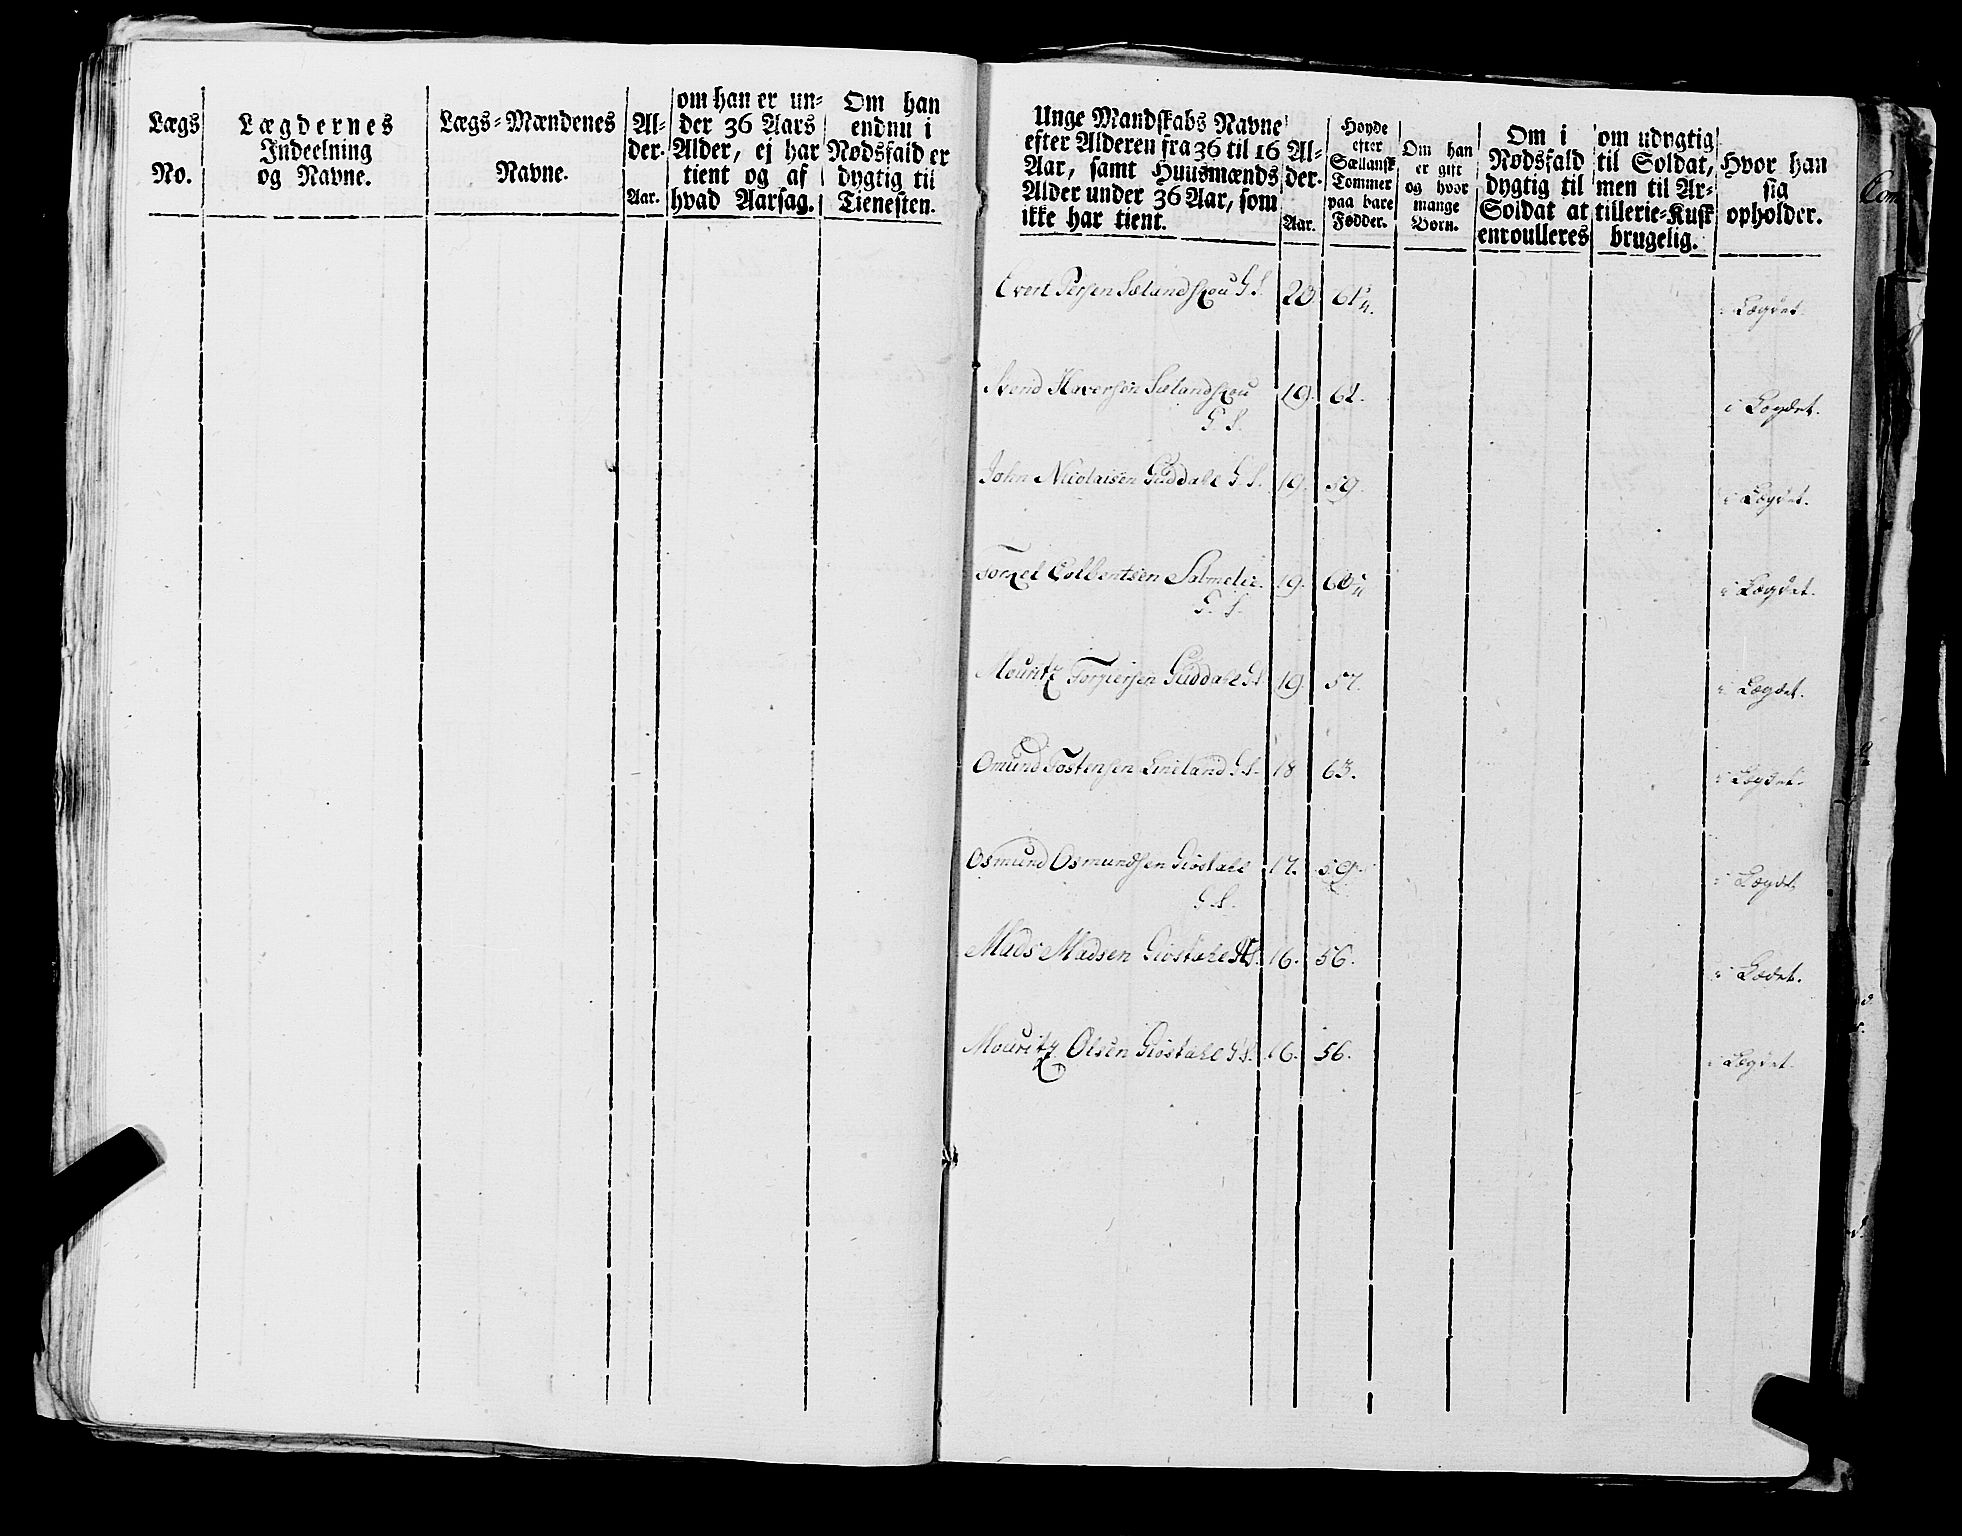 Lægs
No.
Lægdernes
Indeelning
og Navne.
Lægs-Mændenes
Navne.
Al-
der.
Aar.
om han er un-
der 36 Aars
Alder, ej har
tient og af
hvad Aarsag.
Om han
endnu i
Nødsfald er
dygtig til
Tienesten.
Unge Mandskabs Navne
efter Alderen fra 36 til 16
Aar, samt Huusmænds
Alder under 36 Aar, som
ikke har tient.
Al-
der.
Aar.
Høyde
efter
Sællansk
Tommer
paa bare
Fødder.
Om han
er gift
og hvor
mange
Børn.
Om i
Nødsfald
dygtig til
Soldat at
enroulleres
om udygtig
til Soldat,
men til Ar-
tillerie-Kusk
brugelig.
Hvor han
sig
opholder.
Evert Persen Sælandskou G S. 20 61 1/4. i Lægdet.
Svend Haversen Sælandskou 19. 61. i Lægdet.
G. S.
John Nicolaisen Guddale G S. 19. 59. i Lægdet.
Torkel Colbentsen Salmelie. 19. 60 1/4 i Lægdet.
G. S.
Mouritz Torgiersen Guddale G S 19 57. i Lægdet.
Omund Tostensen Lineland G S. 18 63. i Lægdet.
Osmund Osmundsen Giøstale 17. 59. i Lægdet
G. S.
Mads Madsen Giøstale 16. 56. i Lædet.
Mouritz Olsen Giøstale G S. 16. 56. i Lægdet.
Com